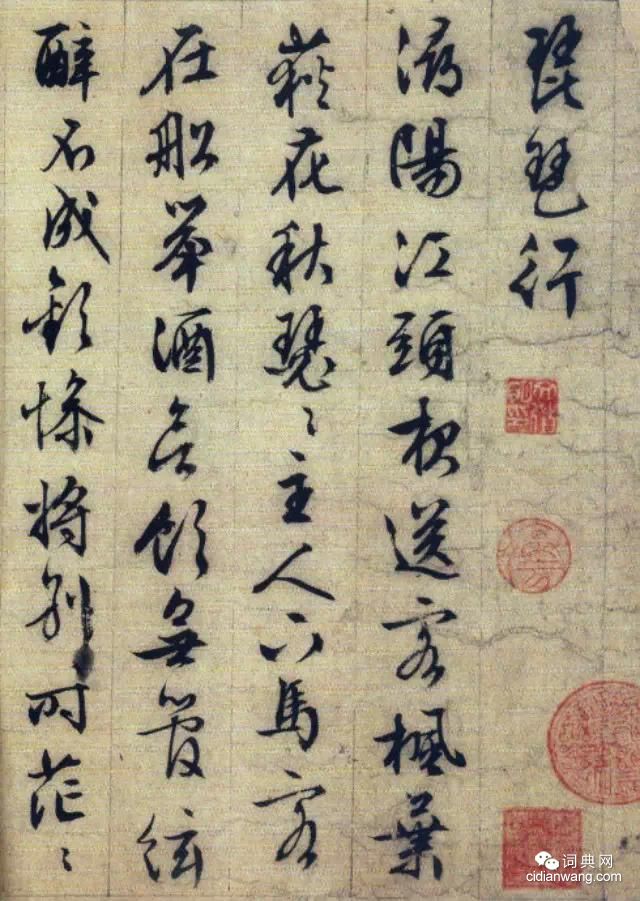 琵琶行
潯陽江頭夜送客楓葉
荻花秋瑟〻主人下馬客
在船舉酒欲飲無管絃
醉不成歡慘將別〻時茫〻
词典网
cidianwang.com